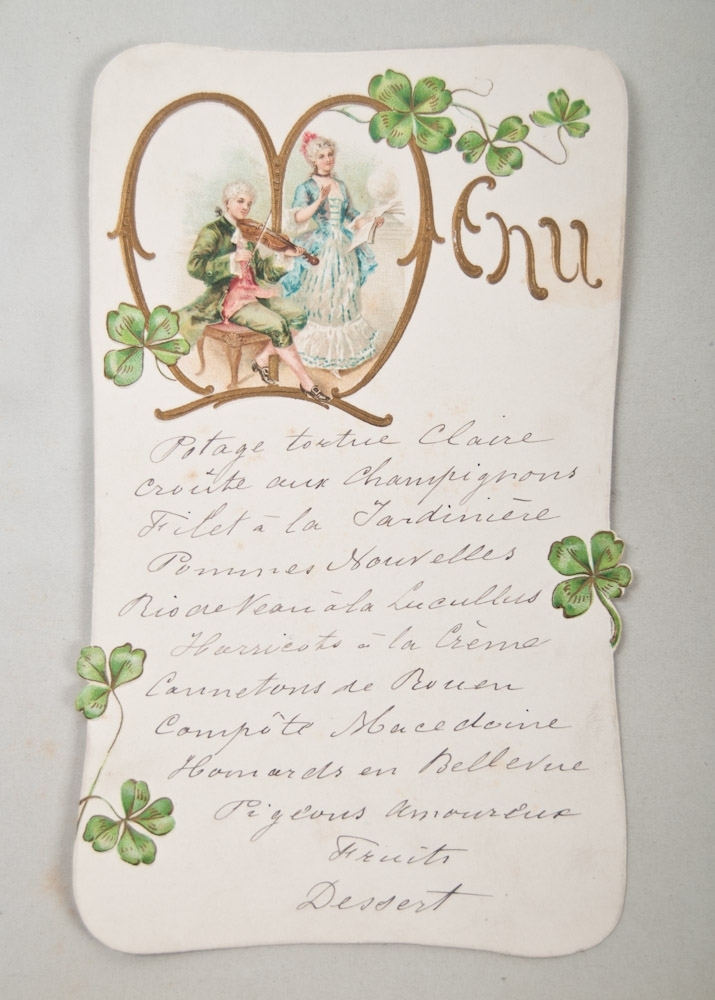 Menu
Potage tortue Claire
Croûte aux Champignons
Filet à la Jardinière
Pommes Nouvelles
Rio de Veau à la Lucullus
Harricots à la Crème
Cannetons de Rouen
Compôte Macedoine
Homards en Bellevue
Pigeons Amoureux
Fruits
Dessert